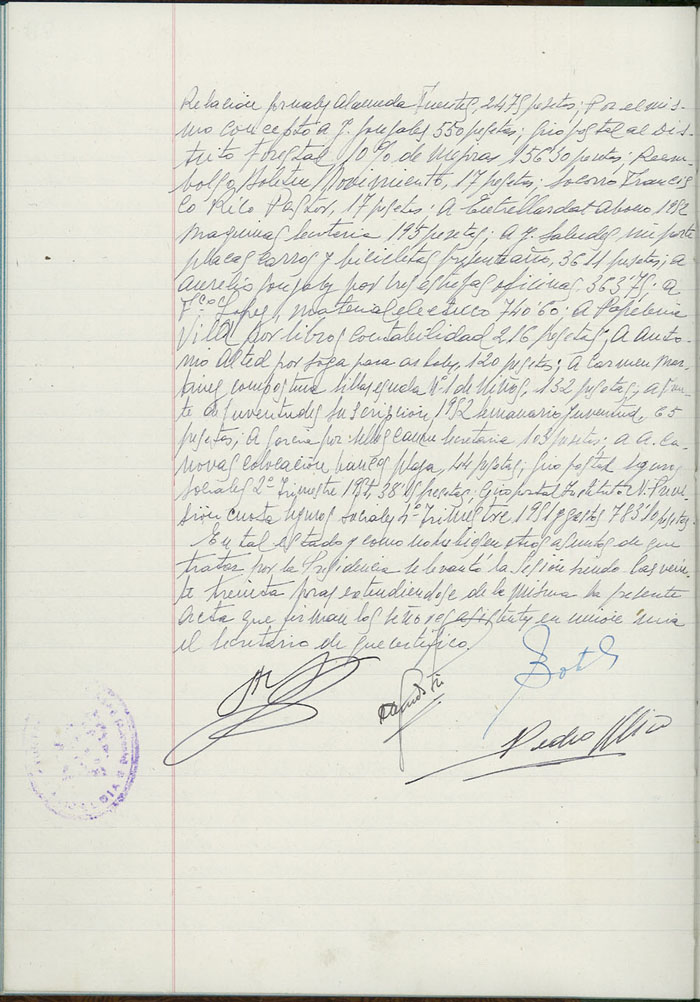 Relación jornales Alameda Fuentes, 2475 pesetas; Por el mis-
mo concepto a J. Gonzalez 550 pesetas; Giro postal al Dis-
trito Forestal 10% de Mejoras 156'30 pesetas; Reem-
bolso Boletin Movimiento, 17 pesetas; Socorro Francis
co Rico Pastor, 17 pesetas; A Abono 1952
maquinas Secretaria 195 pesetas; a J. Saludes, importe
placas carros y bicicletas presente año, 3611 pesetas; a
Aurelio Gonzalez por tres estufas oficinas, 363'75; a
Fco Lopez, material electrico 740'60; A Papeleria
Vila por libros contabilidad 216 pesetas, A Anto-
nio por soga para 120 pesetas; A Carmen Mar-
tinez compostura sillas escuela nº 1 de Niños, 132 pesetas; a
te de Juventudes suscripcion 1952 semanario Juventud, 65
pesetas; A Garcia por sellos Secretaria 103 pesetas; a A. Ca-
novas colocacion bancos plaza, 44 pesetas; Giro postal seguros
sociales 2º Trimestre pesetas; Giro postal Instituto N. Previ-
sion cuota seguros sociales 4º Trimestre 1951 y gastos 783'10 pesetas.
En tal estado y como no hubiesen otros asuntos de que
tratar por la Presidencia se levantó la Sesión siendo las vein-
te treinta horas extendiendose de la misma la presente
acta que firman los señores asistentes en union mia
el Secretario de que certifico.
Pedro Rico